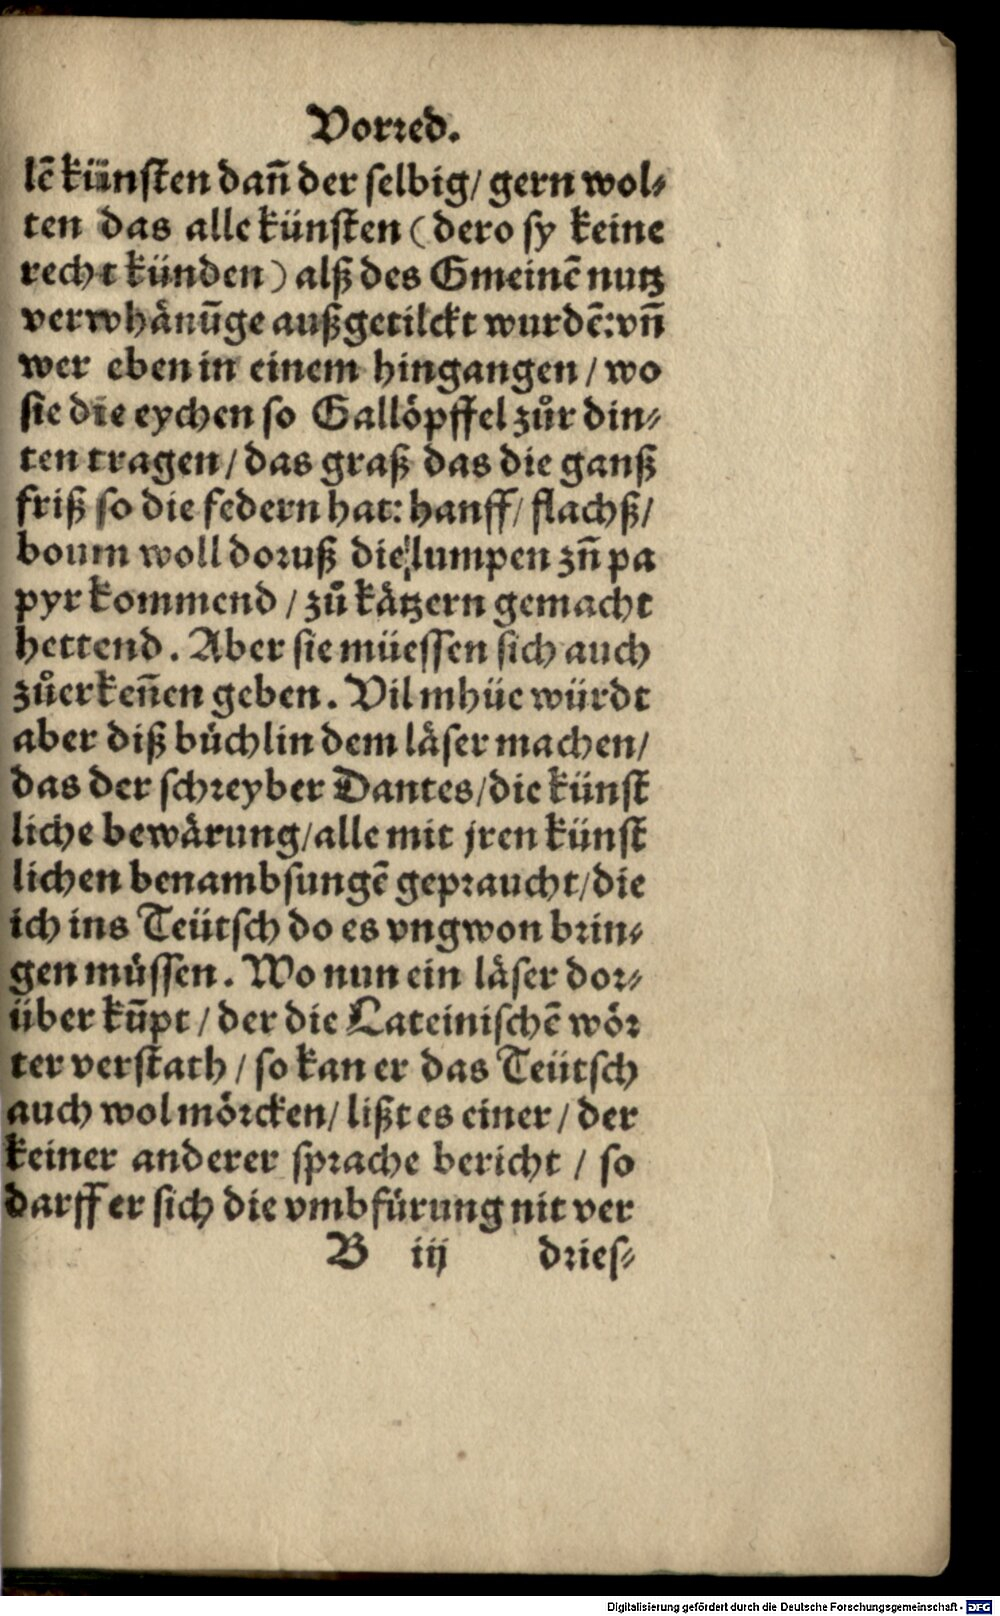 Vorred.
lē künsten dañ der selbig/ gern wol⸗
ten das alle künsten (dero sy keine
recht künden) alß des Gmeinē nutz
verwhänūge außgetilckt wurdē: vñ
wer eben in einem hingangen / wo
sie die eychen so Gallöpffel zůr din⸗
ten tragen / das graß das die ganß
friß so die federn hat: hanff / flachß /
boum woll doruß die lumpen zů pa
pyr kommend / zů kätzern gemacht
hettend. Aber sie müessen sich auch
zůerkeñen geben. Vil mhüe würdt
aber diß büchlin dem läser machen /
das der schreyber Dantes / die künst
liche bewärung / alle mit jren künst
lichen benambsungē gepraucht / die
ich ins Teütsch do es vngwon brin⸗
gen müssen. Wo nun ein läser dor⸗
über kūpt / der die Lateinischē wör
ter verstath / so kan er das Teütsch
auch wol mörcken / lißt es einer / der
keiner anderer sprache bericht / so
darff er sich die vmbfürung nit ver
B iij dries⸗
Digitalisierung gefördert durch die Deutsche Forschungsgemeinschaft - DFG